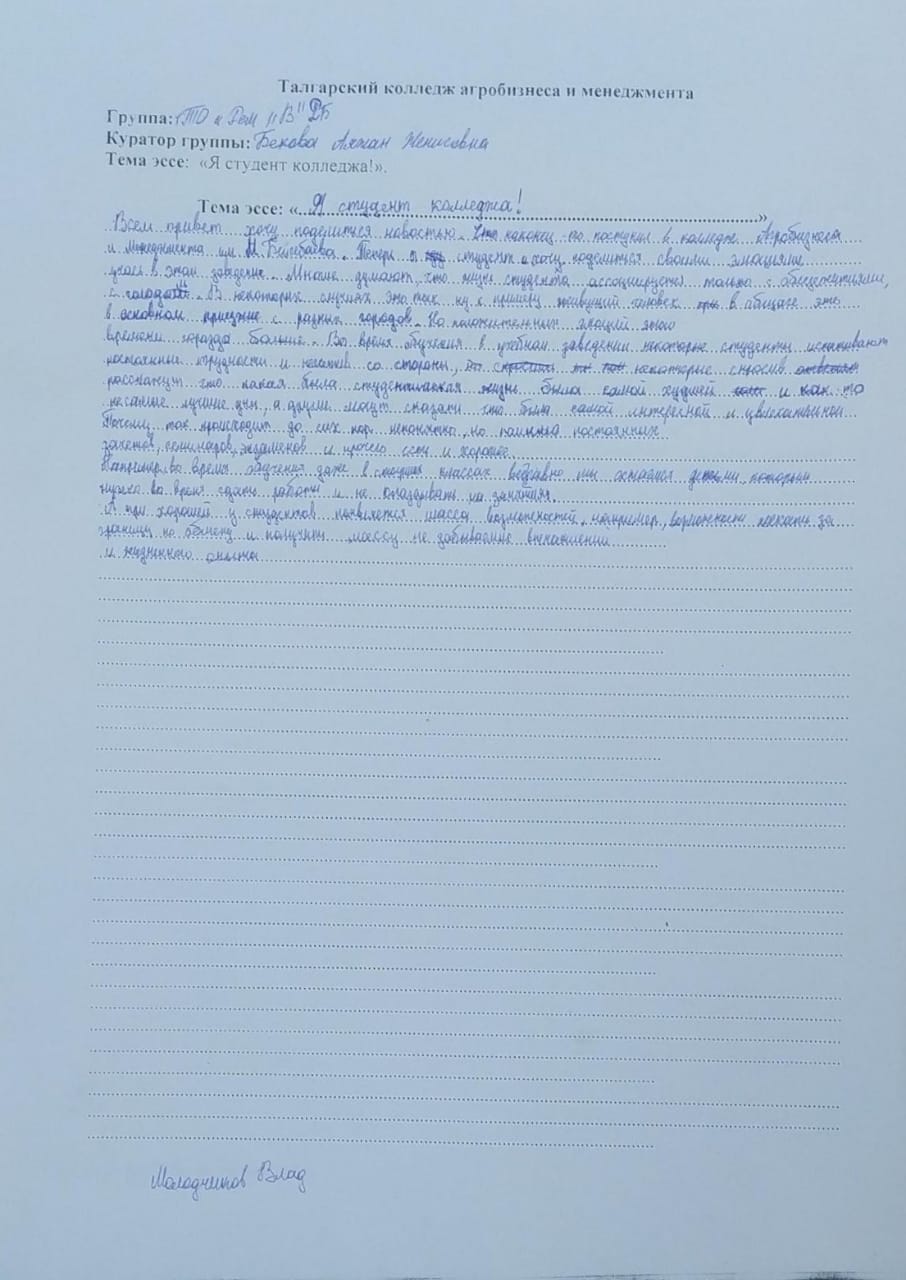 Талгарский колледж агробизнеса и менеджмента
Группа: ТО и Рем "В"
Куратор группы: Бекова Аяжан Женисовна
Тема эссе: «Я студент колледжа!».
Тема эссе: «Я студент колледжа!»
Всем привет хочу поделиться новостью. Что наконец-то поступил в колледж Агробизнеса
и Менеджмента им. М. Бейсебаева. Теперь я студент и хочу поделиться своими эмоциями
учась в этом заведение. Многие думают, что жизнь студента ассоциируется только с общежитиями,
с голодом. В некоторых случаях это так ну к примеру живущий человек в общаге это
в основном приезжие с разных городов. Но положительных эмоций этого
времени гораздо больше. Во время обучения в учебном заведении некоторые студенты испытывают
постоянные трудности и негатив со стороны, некоторые спросив
расскажут что какая была студенческая жизнь была самой худшей и как-то
не самые лучшие дни, а другие могут сказать что была самой интересной и увлекательной
Почему так происходит до сих пор непонятно, но помимо постоянных
зачетов, семинаров, экзаменов и прочего есть и хорошое
Например во время обучения даже в старших классах всё равно мы остаёмся детьми которым
нужно во время сдать работы и не опаздывать на занятия.
А при хорошей у студентов появляется масса возможностей, например, возможность поехать за
границу по обмену и получить массу не забываемые впечатлений
и жизненного опыта
Молодчиков Влад